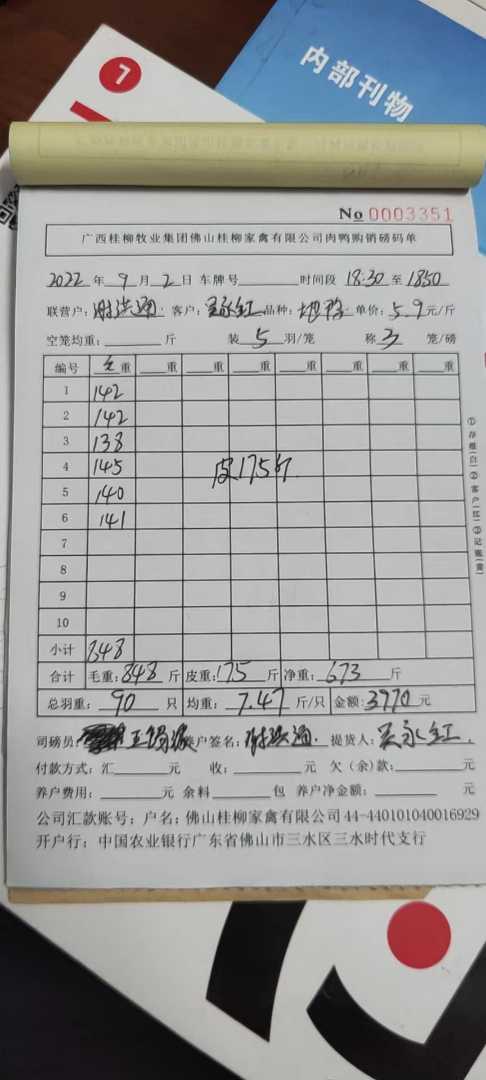 7
内部刊物
No 0003351
广西桂柳牧业集团佛山桂柳家禽有限公司肉鸭购销磅码单
2022 年 9 月 2 日 车牌号 时间段 18:30 至 1850
联营户: 客户: 吴永红 品种: 单价: 5.9 元/斤
空笼均重: 斤 装 5 羽/笼 称 3 笼/磅
编号 毛重 重 重 重 重 重 重 重
1 142
2 142
3 138
4 145 皮175斤
5 140
6 141
7
8
9
10
小计 848
合计 毛重: 848 斤 皮重: 175 斤 净重: 673 斤
总羽重: 90 只 均重: 7.47 斤/只 金额: 3970 元
司磅员: 养户签名: 提货人: 吴永红
付款方式: 汇 元 收: 元 欠(余)款: 元
养户费用: 元 余料 包 养户净金额: 元
公司汇款账号: 户名: 佛山桂柳家禽有限公司 44-440101040016929
开户行: 中国农业银行广东省佛山市三水区三水时代支行
①存根(白)②客户(红)③记账(黄)